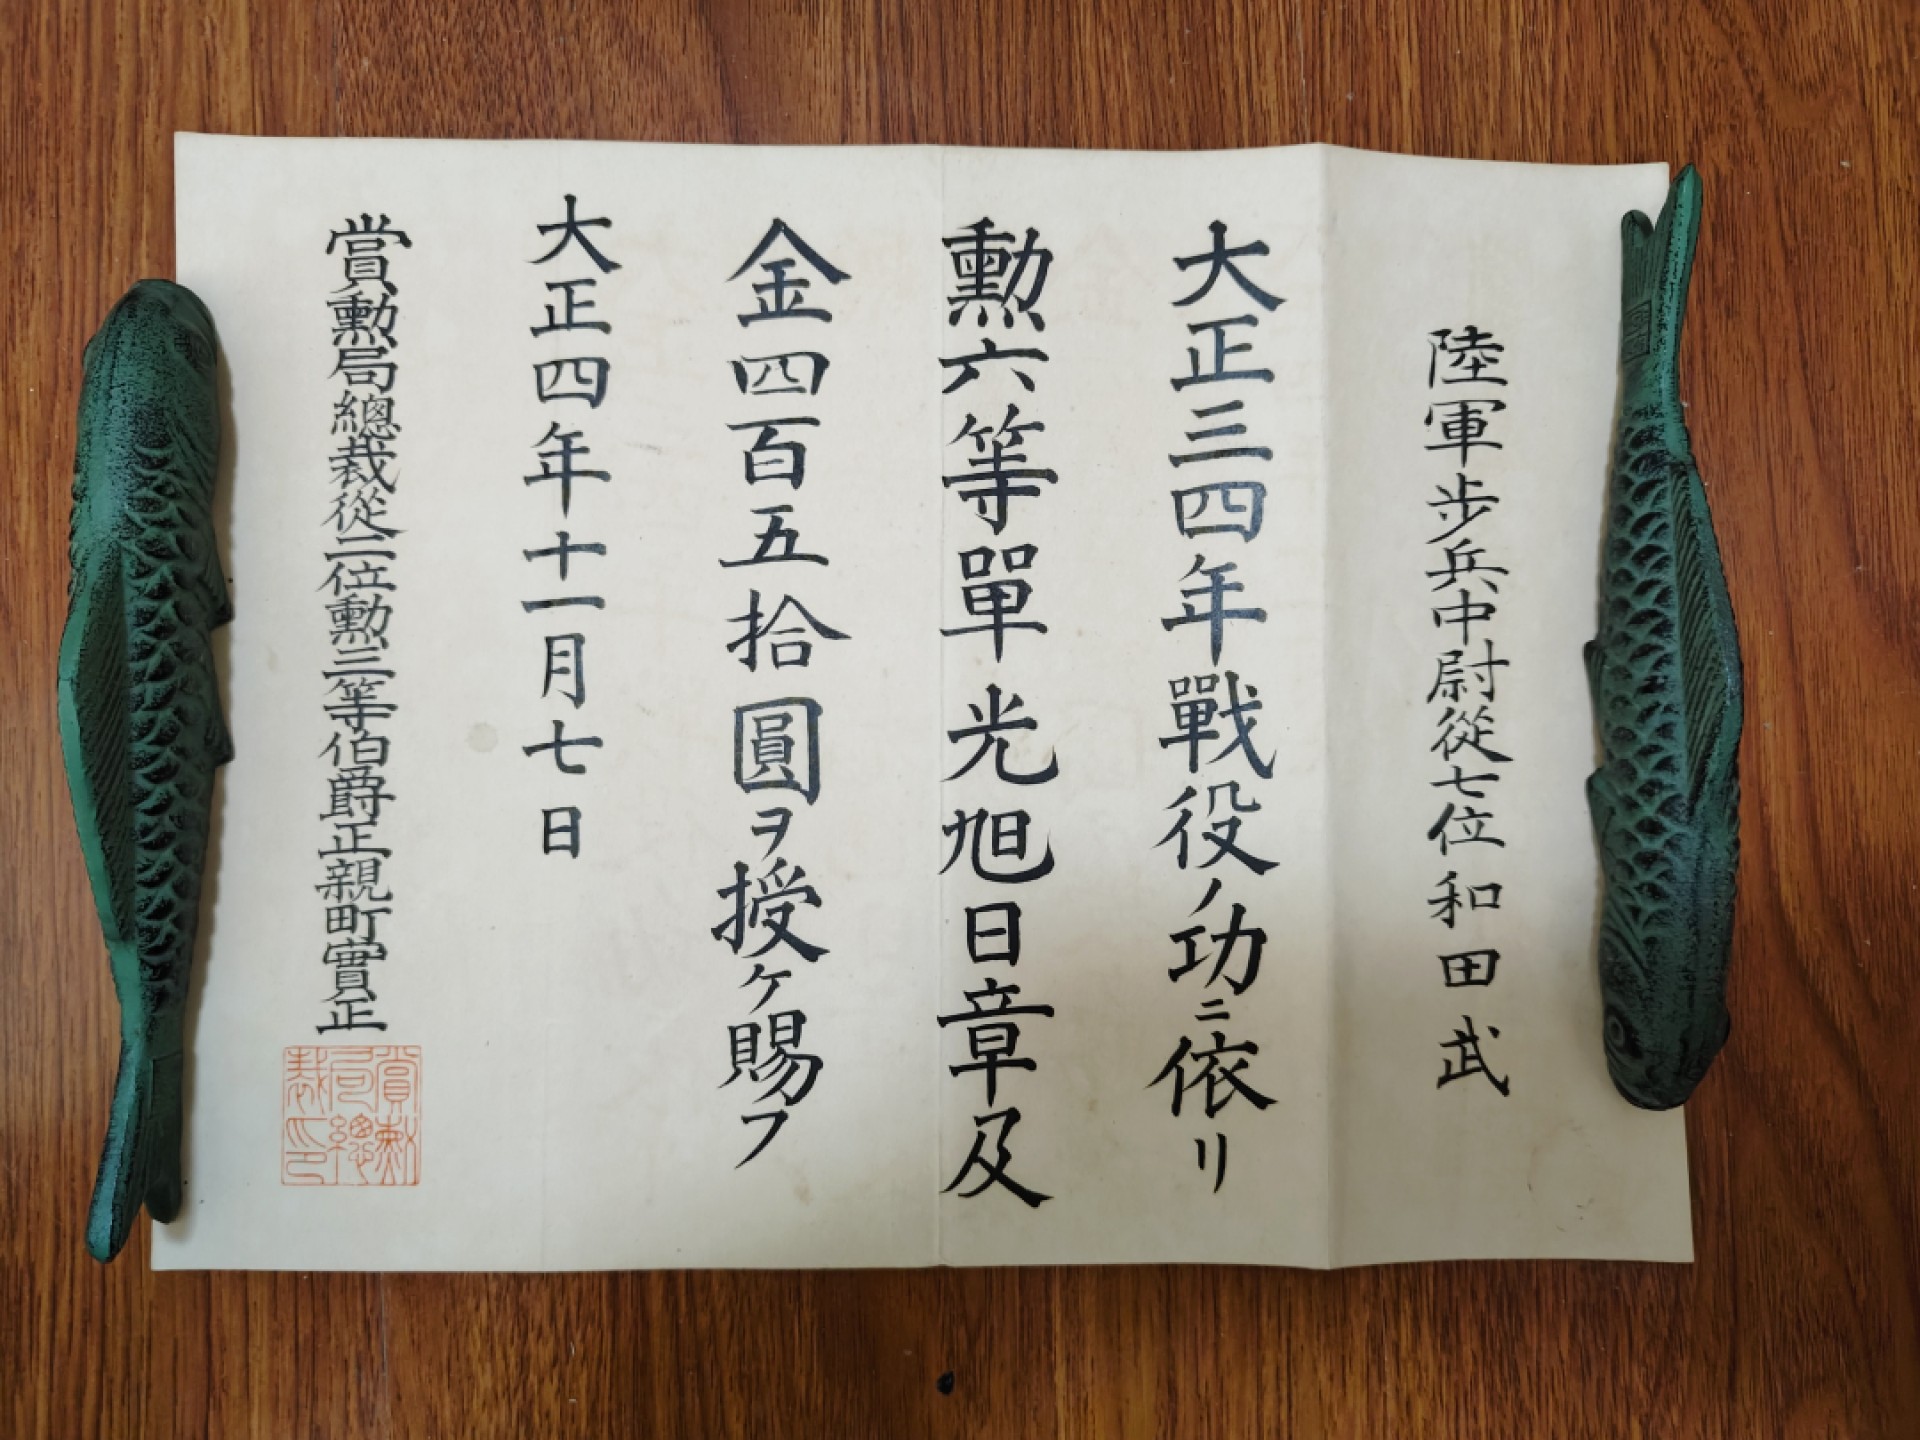 陸軍歩兵中尉從七位和田武
大正三四年戰役ノ功ニ依リ
勲六等單光旭日章及
金四百五拾圓ヲ授ケ賜フ
大正四年十一月七日
賞勲局總裁從二位勲三等伯爵正親町實正
賞勲局總裁印